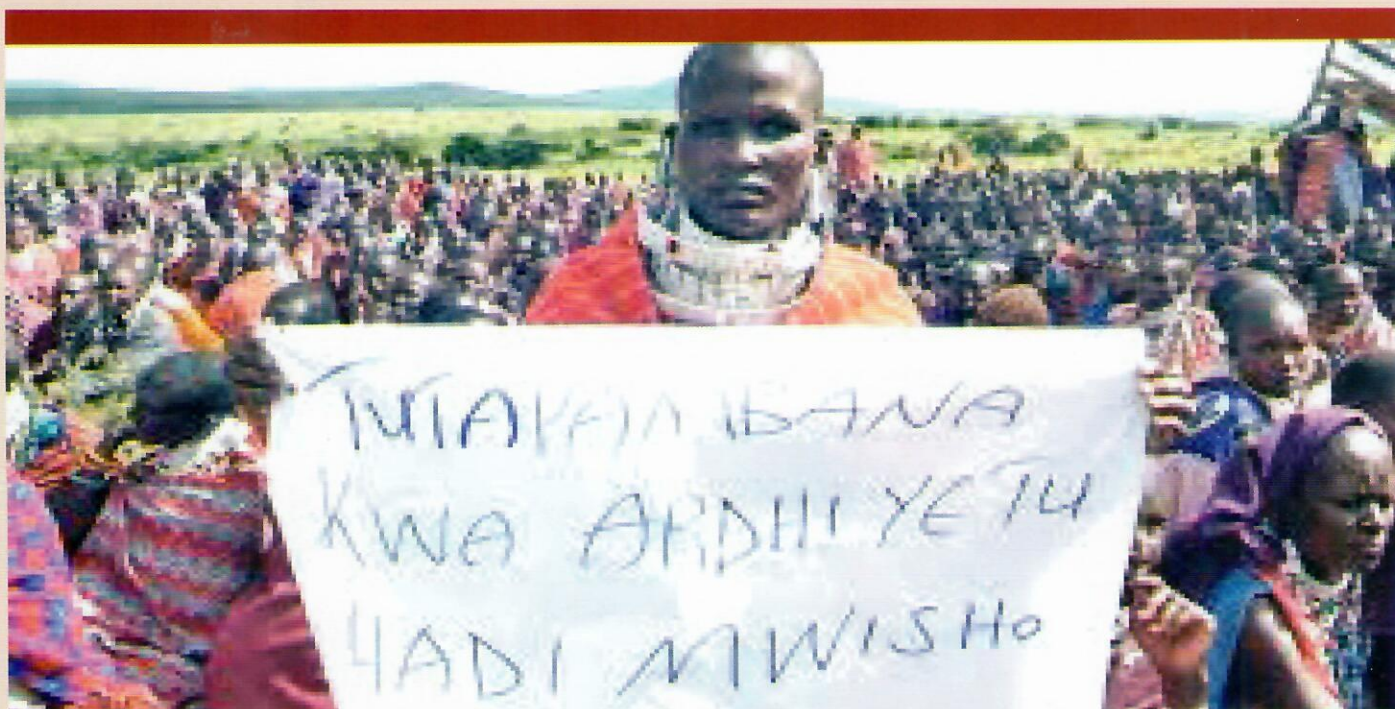 TUTAPAMBANA
KWA ARDHI YETU
HADI MWISHO